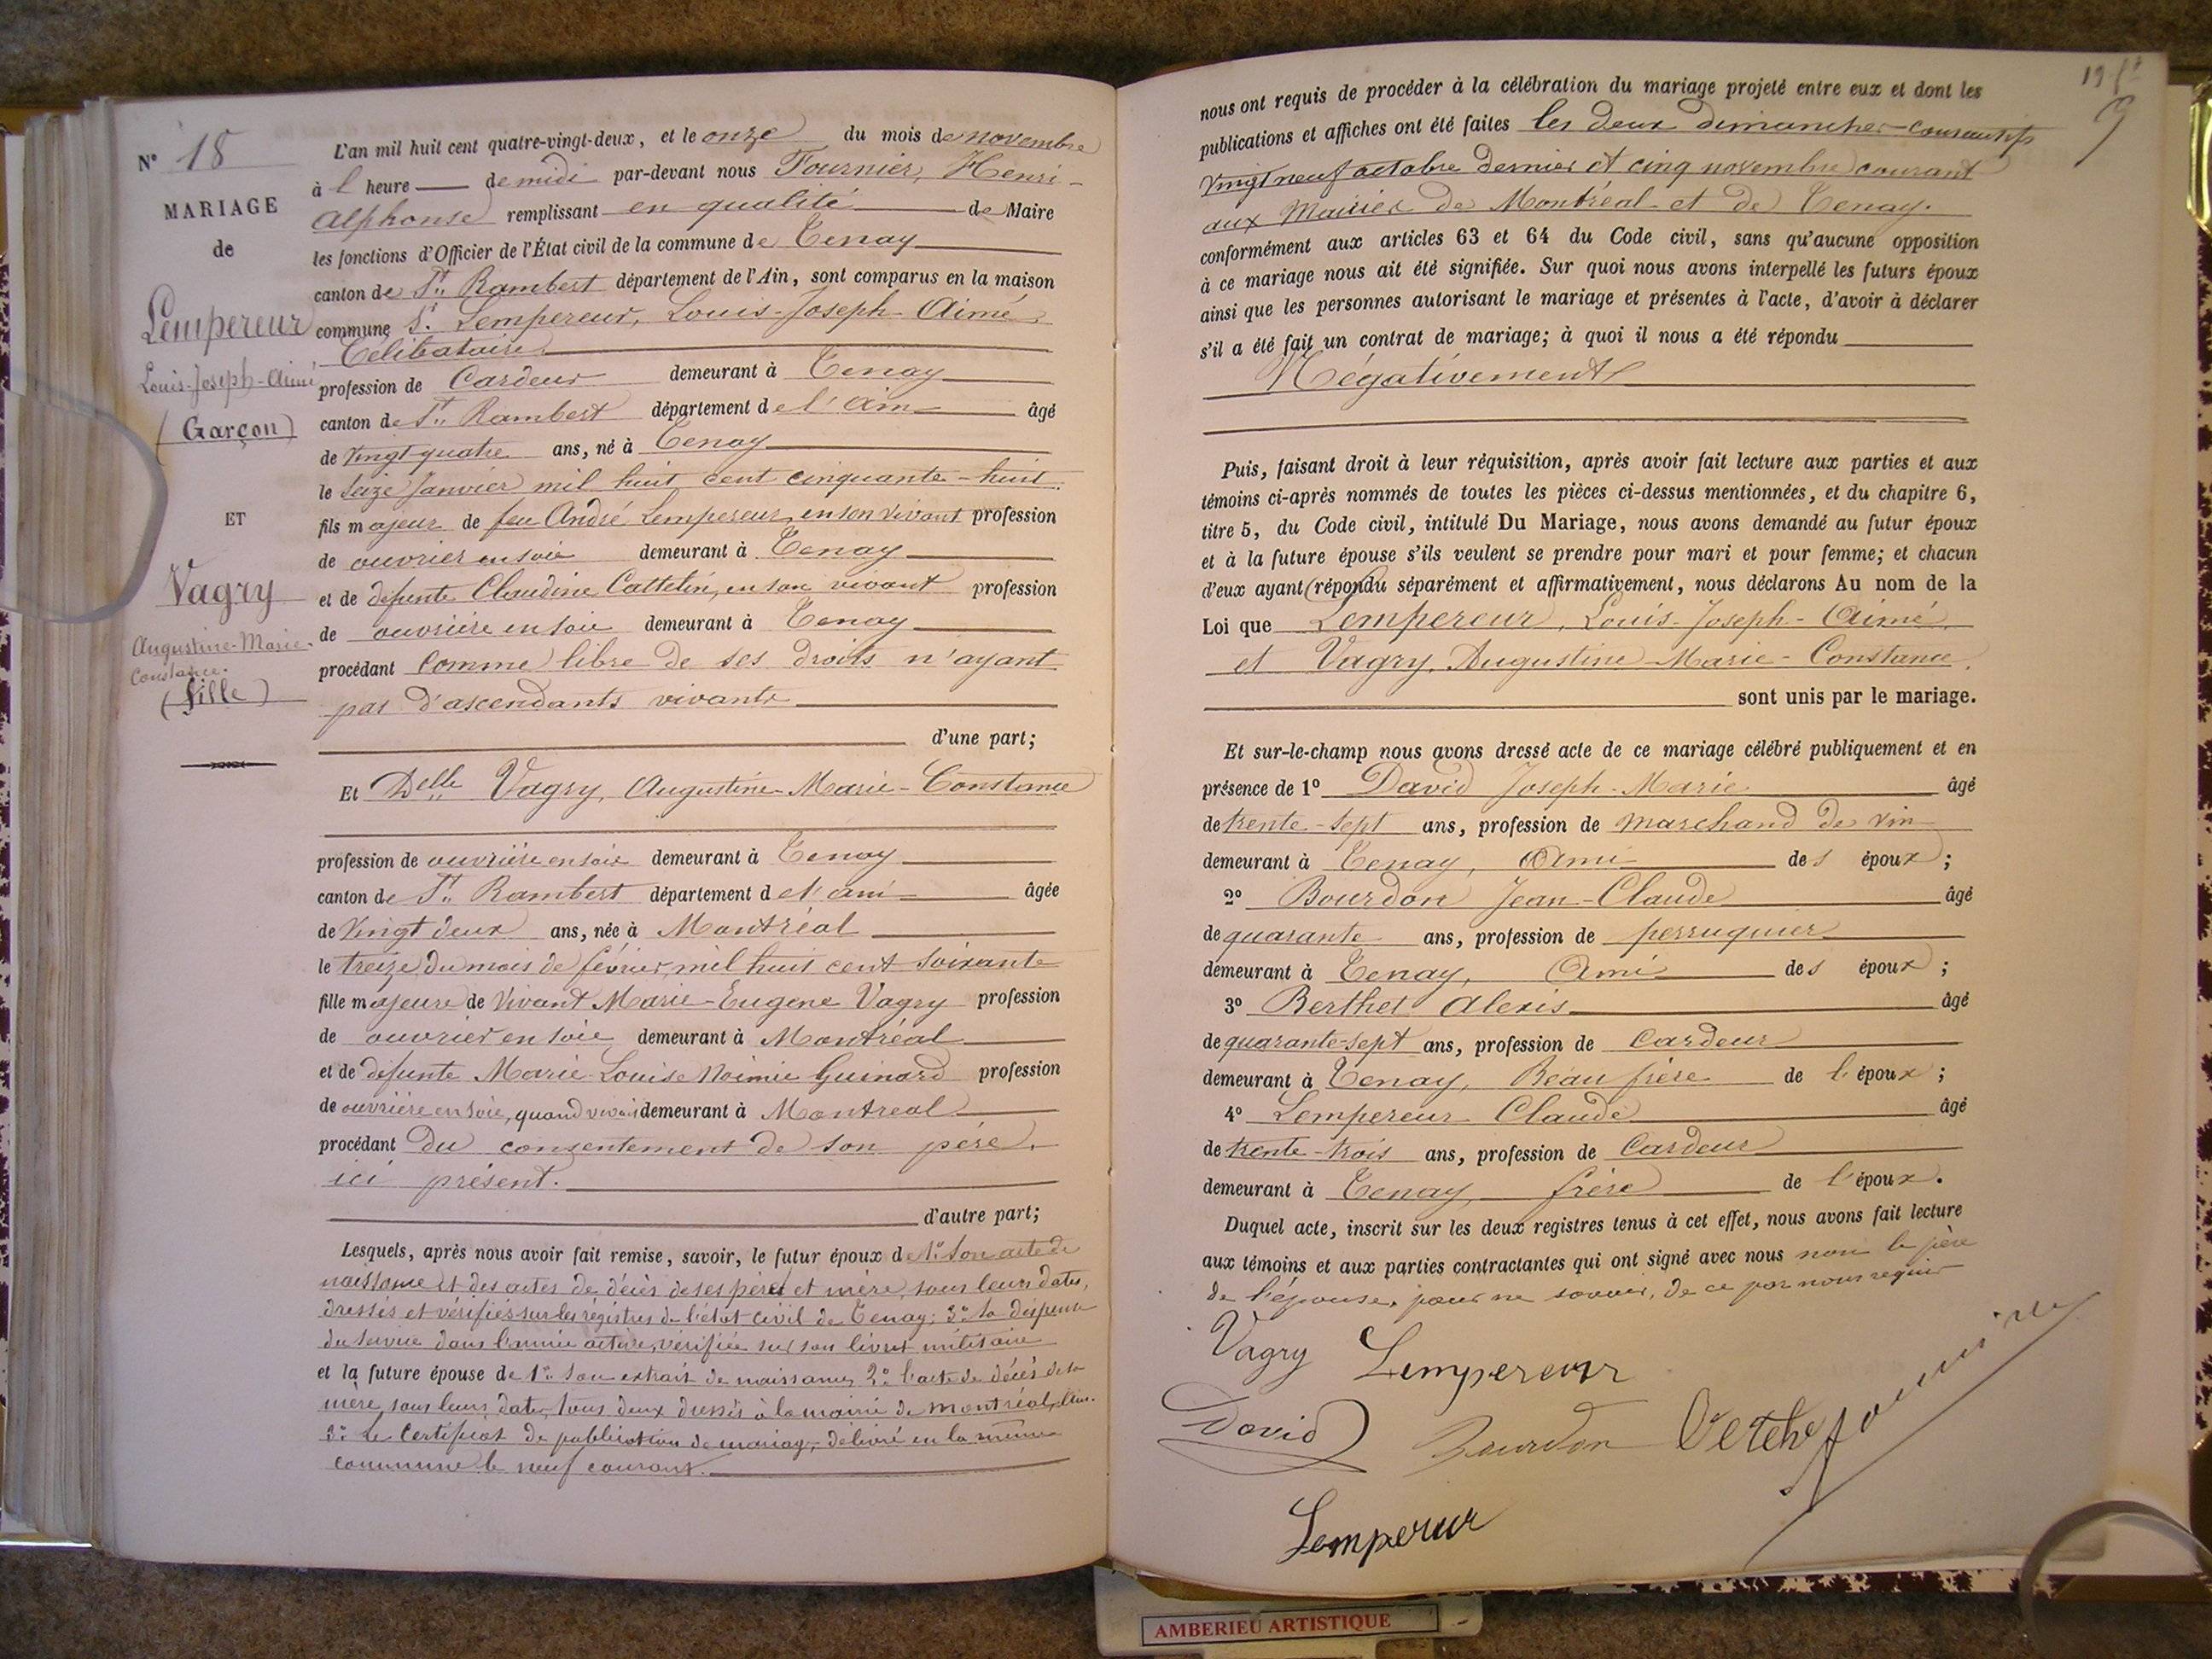 N° 18
MARIAGE
de
Lempereur
Louis-Joseph-Aimé
(Garçon)
ET
Vagry
Augustine-Marie-
Constance.
(fille)
L'an mil huit cent quatre-vingt-deux, et le onze du mois de novembre
à l heure de midi par-devant nous Fournier, Henri-
Alphonse remplissant en qualité de Maire
les fonctions d'Officier de l'État civil de la commune de Tenay
canton de St Rambert département de l'Ain, sont comparus en la maison
commune Sr Lempereur, Louis-Joseph-Aimé
Célibataire
profession de Cardeur demeurant à Tenay
canton de St Rambert département de l'Ain âgé
de vingt quatre ans, né à Tenay
le seize Janvier mil huit cent cinquante-huit
fils majeur de feu André Lempereur, en son vivant profession
de ouvrier en soie demeurant à Tenay
et de défunte Claudine Cattelin, en son vivant profession
de ouvrière en soie demeurant à Tenay
procédant comme libre de ses droits n'ayant
pas d'ascendants vivants
d'une part;
Et Delle Vagry, Augustine-Marie-Constance
profession de ouvrière en soie demeurant à Tenay
canton de St Rambert département de l'ain âgée
de vingt deux ans, née à Montréal
le treize du mois de février, mil huit cent soixante
fille majeure de vivant Marie-Eugène Vagry profession
de ouvrier en soie demeurant à Montréal
et de défunte Marie-Louise Noimie Guinard profession
de ouvrière en soie, quand vivait demeurant à Montreal
procédant du consentement de son père,
ici présent.
d'autre part;
Lesquels, après nous avoir fait remise, savoir, le futur époux de 1° son acte de
naissance et des actes de décès de ses père et mère, sous leurs dates,
dressés et vérifiés sur les régistres de l'état civil de Tenay; 3° sa dispense
du service dans l'armée active, vérifiée sur son livret militaire
et la future épouse de 1° son extrait de naissance, 2° l'acte de décès de sa
mère, sous leurs dates, tous deux dressés à la mairie de Montréal, Ain.
3° Le Certificat de publication de mariage, délivré en la même
commune le neuf courant.
19
9
nous ont requis de procéder à la célébration du mariage projeté entre eux et dont les
publications et affiches ont été faites les deux dimanches consécutifs
vingt neuf octobre dernier et cinq novembre courant
aux Mairies de Montréal et de Tenay.
conformément aux articles 63 et 64 du Code civil, sans qu'aucune opposition
à ce mariage nous ait été signifiée. Sur quoi nous avons interpellé les futurs époux
ainsi que les personnes autorisant le mariage et présentes à l'acte, d'avoir à déclarer
s'il a été fait un contrat de mariage; à quoi il nous a été répondu
Négativement
Puis, faisant droit à leur réquisition, après avoir fait lecture aux parties et aux
témoins ci-après nommés de toutes les pièces ci-dessus mentionnées, et du chapitre 6,
titre 5, du Code civil, intitulé Du Mariage, nous avons demandé au futur époux
et à la future épouse s'ils veulent se prendre pour mari et pour femme; et chacun
d'eux ayant répondu séparément et affirmativement, nous déclarons Au nom de la
Loi que Lempereur, Louis-Joseph-Aimé,
et Vagry, Augustine-Marie-Constance,
sont unis par le mariage.
Et sur-le-champ nous avons dressé acte de ce mariage célébré publiquement et en
présence de 1° David Joseph-Marie âgé
de trente-sept ans, profession de marchand de vin
demeurant à Tenay, Ami des époux;
2° Bourdon Jean-Claude âgé
de quarante ans, profession de perruquier
demeurant à Tenay, Ami des époux;
3° Berthet Alexis âgé
de quarante-sept ans, profession de Cardeur
demeurant à Tenay, Beau frère de l'époux;
4° Lempereur Claude âgé
de trente-trois ans, profession de Cardeur
demeurant à Tenay, frère de l'époux.
Duquel acte, inscrit sur les deux registres tenus à cet effet, nous avons fait lecture
aux témoins et aux parties contractantes qui ont signé avec nous non le père
de l'épouse, pour ne savoir, de ce par nous requis
Vagry Lempereur
David Bourdon
Lempereur
AMBERIEU ARTISTIQUE